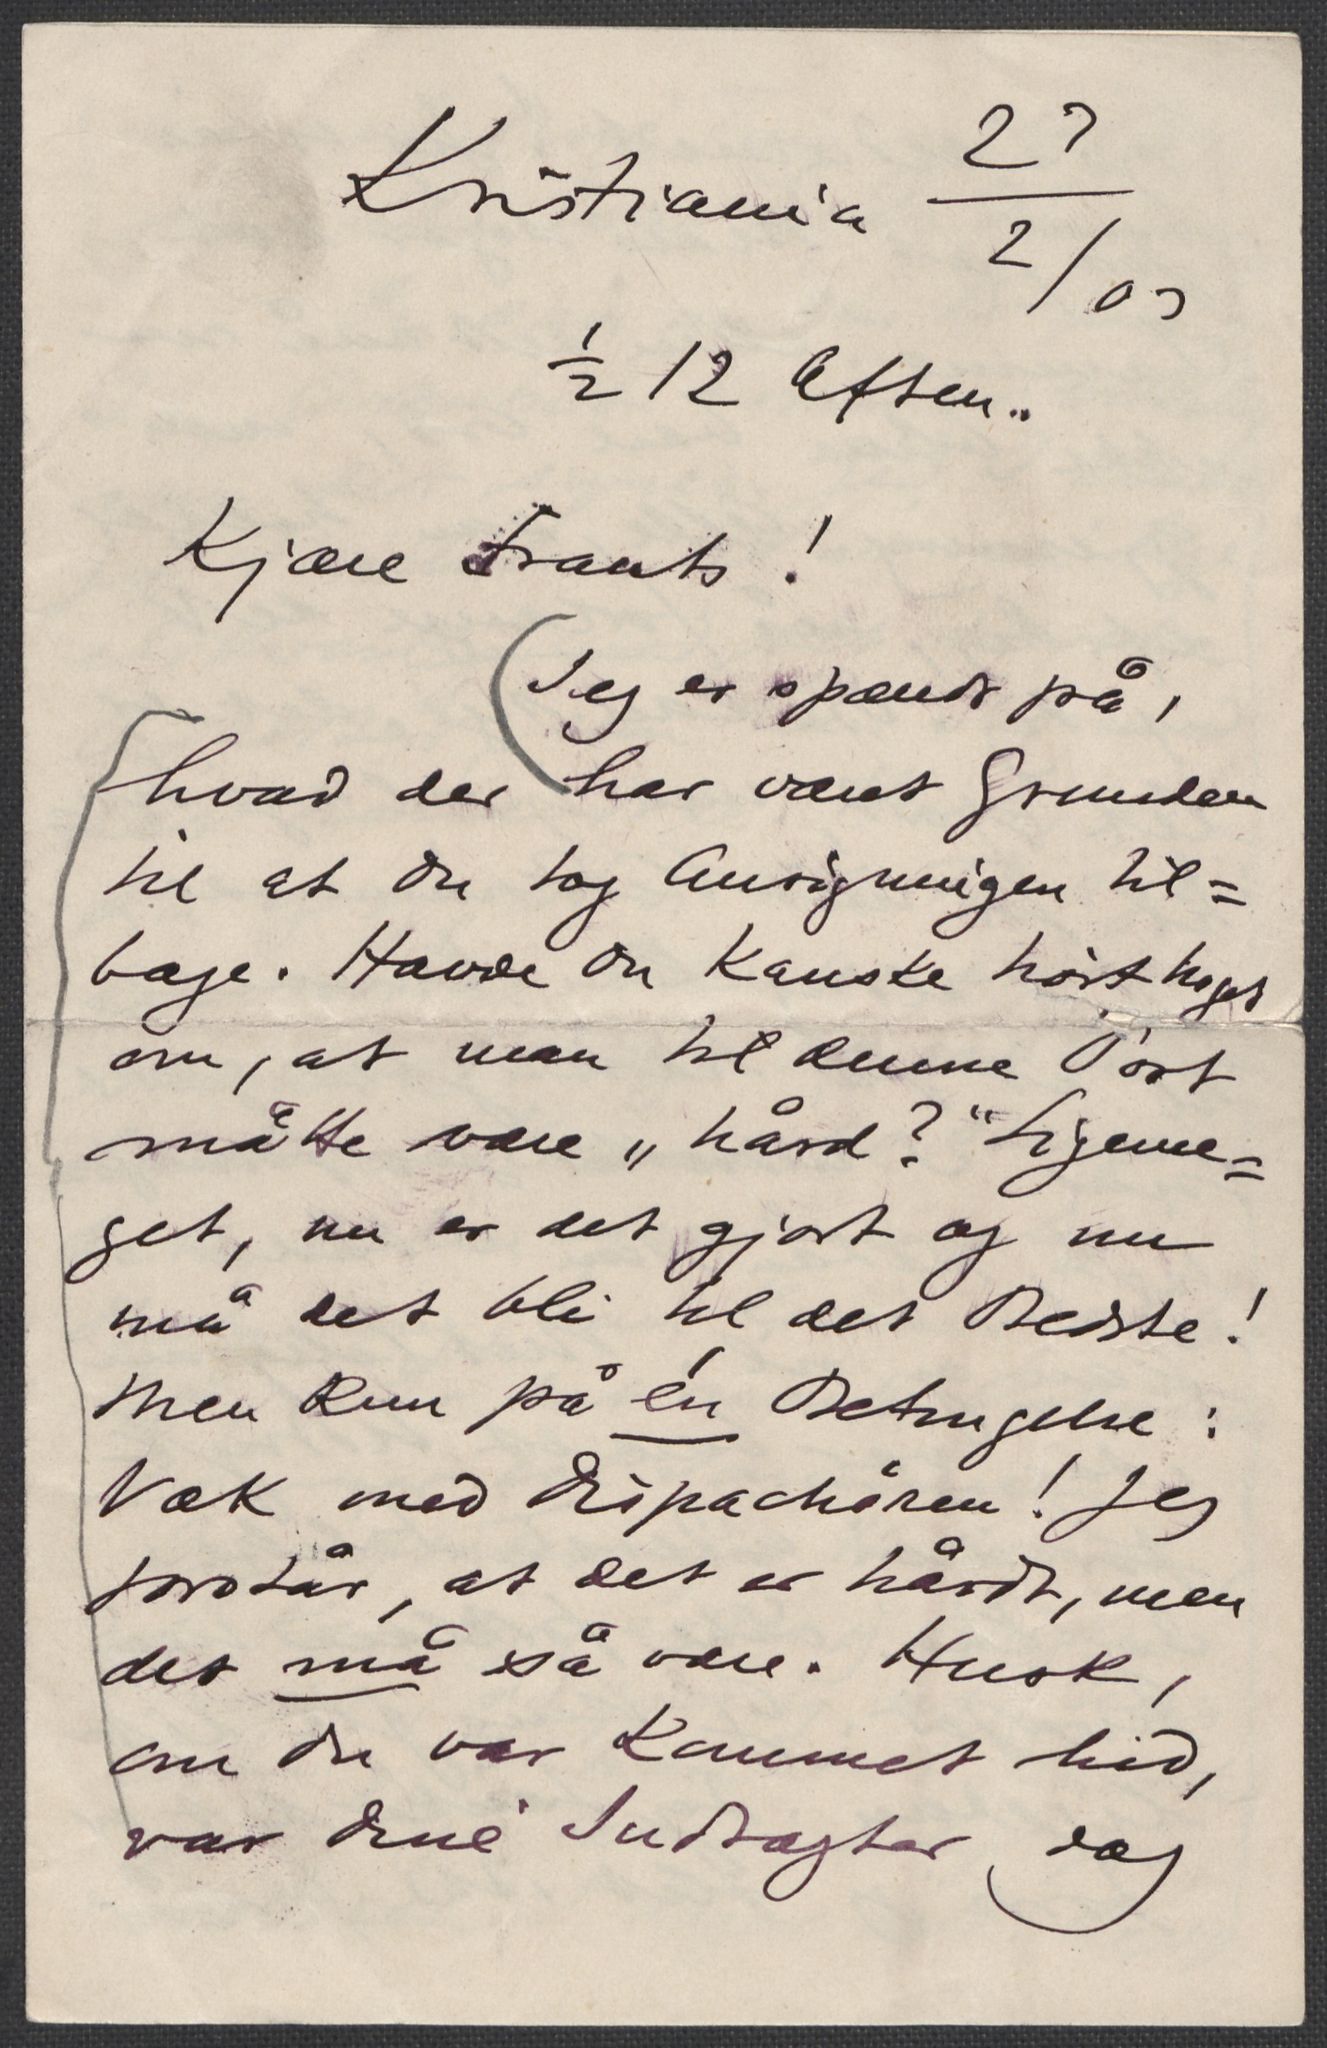 Kristiania 27
2/07
½ 12 Aften.
Kjære Frants!
Jeg er spændt på,
hvad der har vært Grunden
til at du tog Ansøgningen til=
bage. Havde du kanske hørt noget
om, at man til denne Post
måtte være „hård?“ Ligeme=
get, nu er det gjort og nu
må det bli til det Bedste!
Men kun på én Betingelse:
Væk med Dispachøren! Jeg
forstår, at det er hårdt, men
det må så være. Husk,
om du var kommet hid,
var dine Indtægter dog